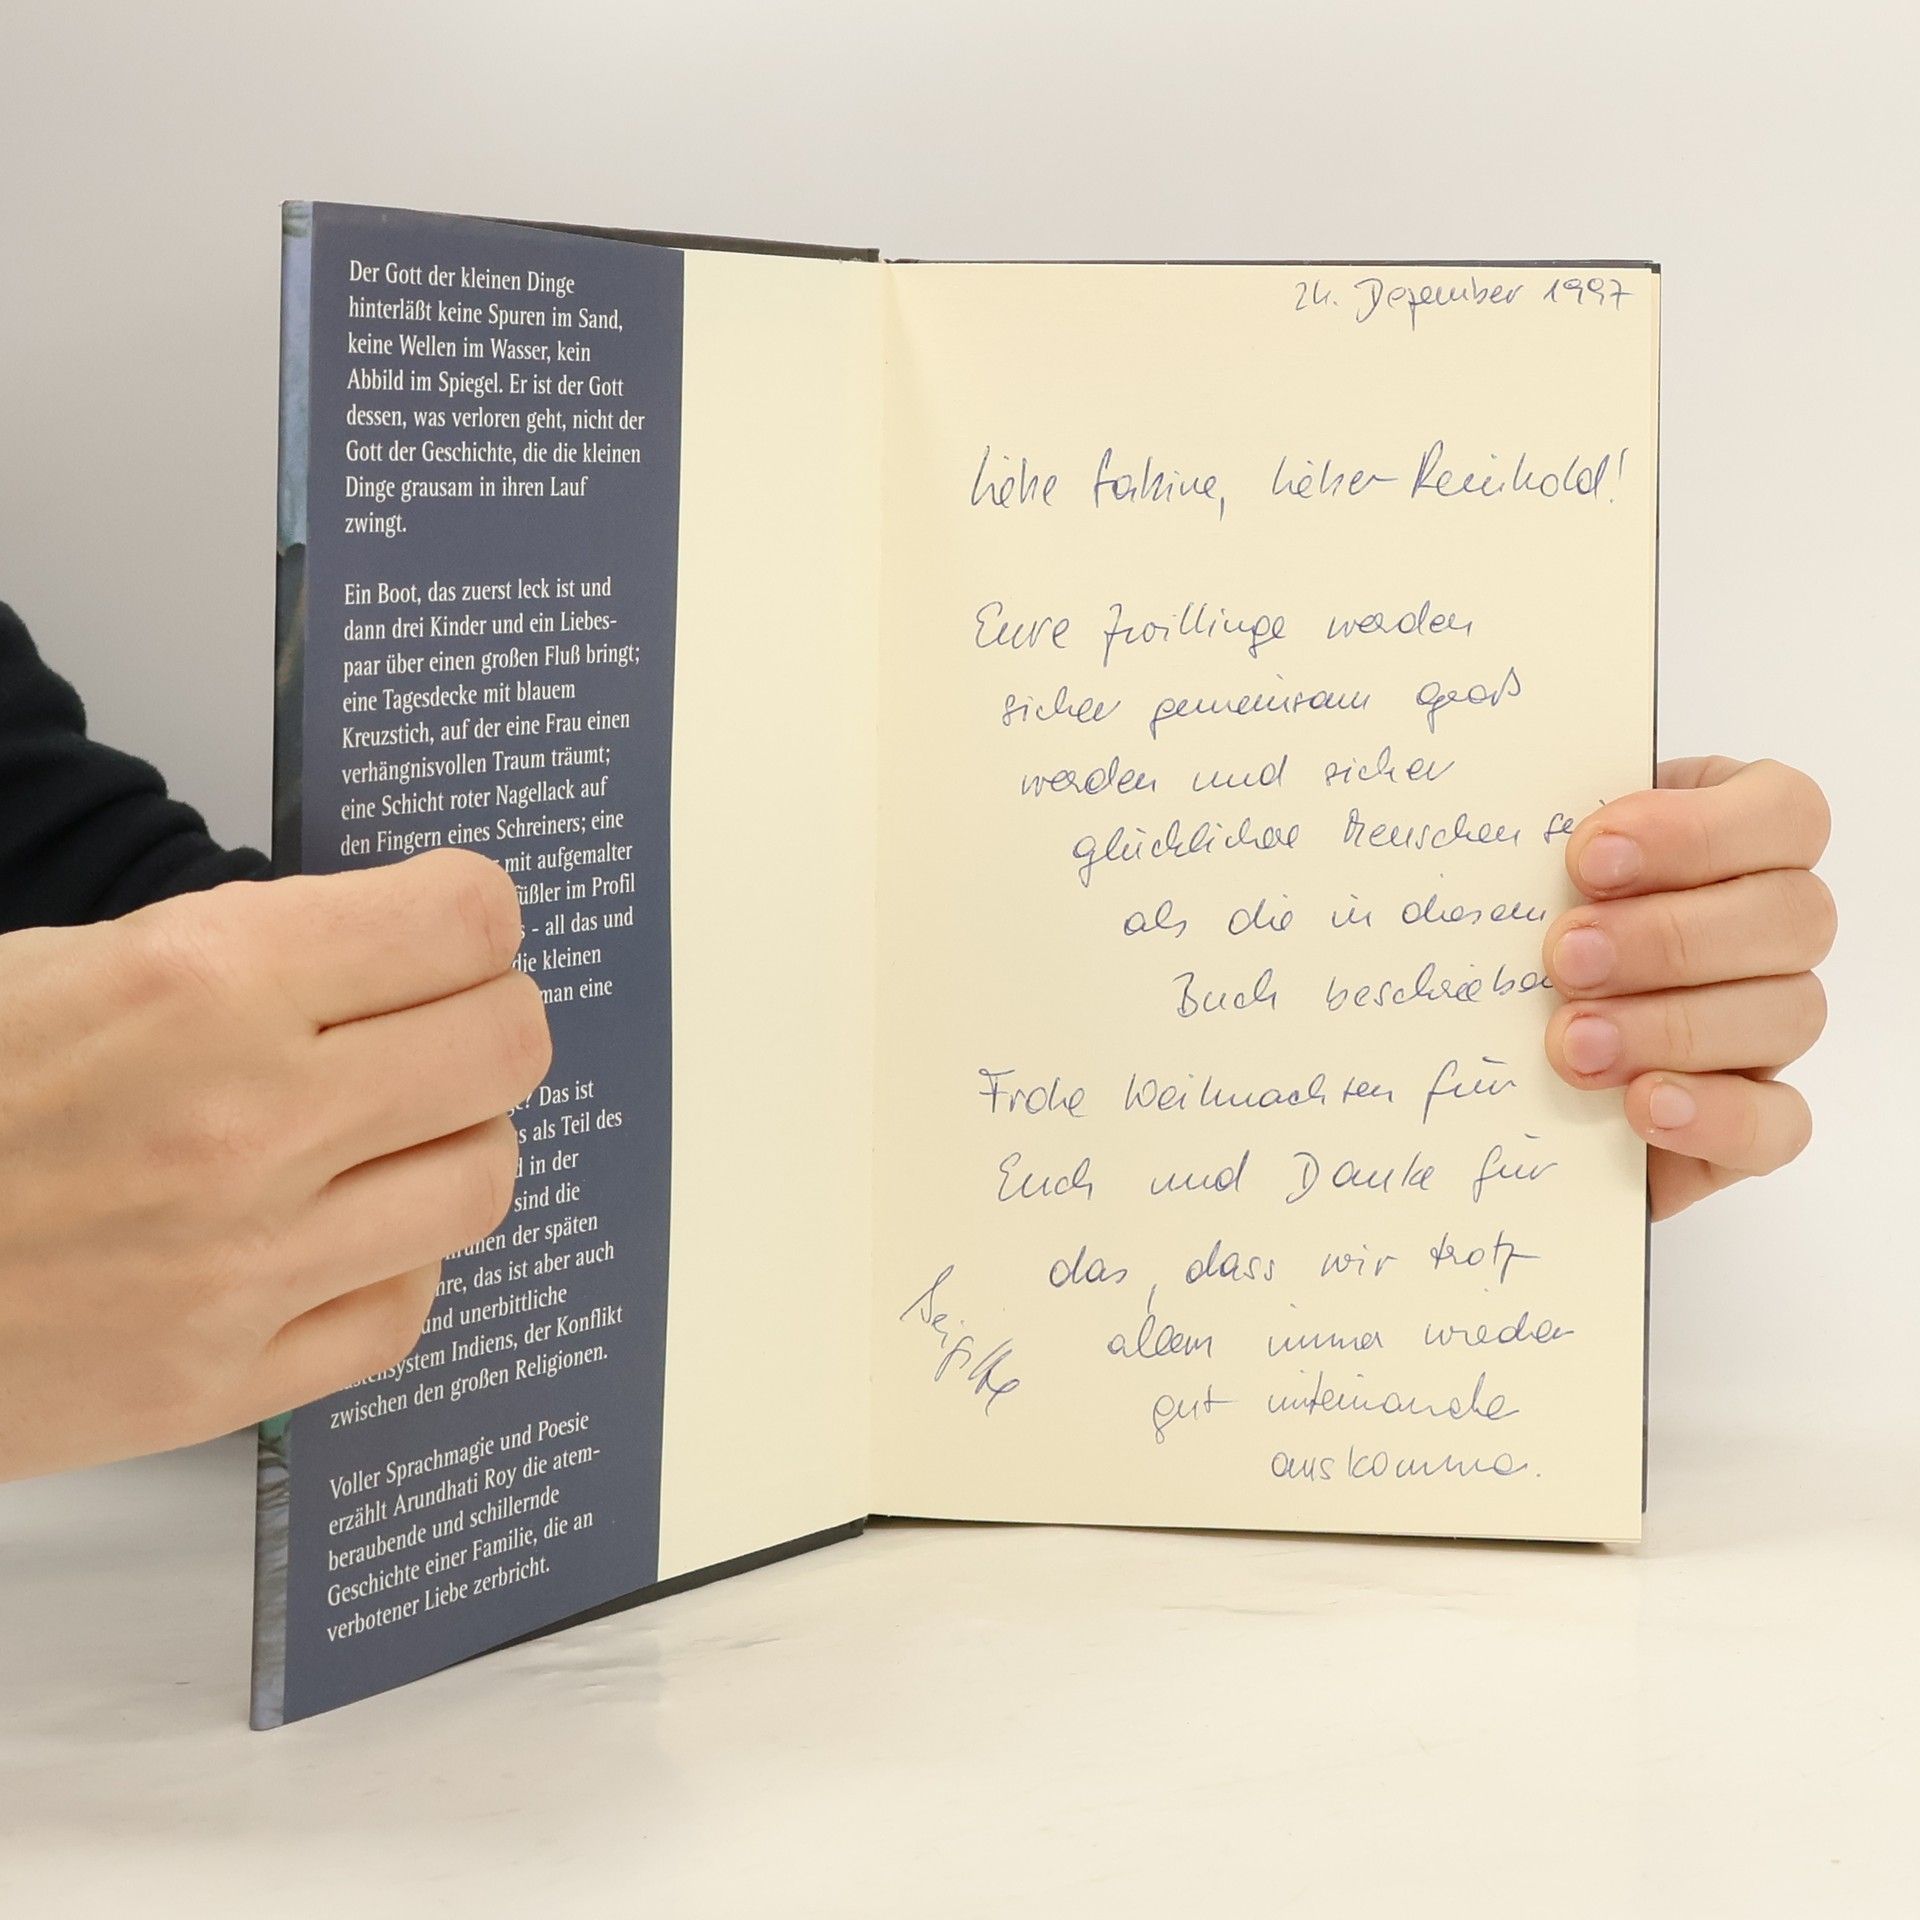 Der Gott der kleinen Dinge
hinterläßt keine Spuren im Sand,
keine Wellen im Wasser, kein
Abbild im Spiegel. Er ist der Gott
dessen, was verloren geht, nicht der
Gott der Geschichte, die die kleinen
Dinge grausam in ihren Lauf
zwingt.
Ein Boot, das zuerst leck ist und
dann drei Kinder und ein Liebes-
paar über einen großen Fluß bringt;
eine Tagesdecke mit blauem
Kreuzstich, auf der eine Frau einen
verhängnisvollen Traum träumt;
eine Schicht roter Nagellack auf
den Fingern eines Schreiners; eine
mit aufgemalter
füßler im Profil
- all das und
die kleinen
man eine
Das ist
als Teil des
in der
sind die
der späten
das ist aber auch
und unerbittliche
system Indiens, der Konflikt
zwischen den großen Religionen.
Voller Sprachmagie und Poesie
erzählt Arundhati Roy die atem-
beraubende und schillernde
Geschichte einer Familie, die an
verbotener Liebe zerbricht.
24. Dezember 1997
Liebe lieber Reinhold!
Eure Zwillinge werden
sicher gemeinsam groß
werden und sicher
glücklichere Menschen
als die in diesem
Buch
Frohe Weihnachten für
Euch und Danke für
das, dass wir trotz
allem immer wieder
gut miteinander
auskommen.